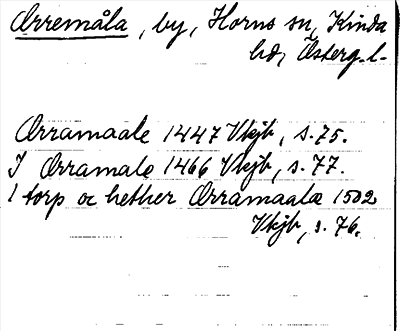 Ørremåla, by, Horns sn, Kinda
hd, Österg. l.
Ørramaale 1447 Vkjb, s. 75.
J Ørramale 1466 Vkjb, s. 77.
1 torp oc hether Ørramaalæ 1502
Vkjb, s. 76.